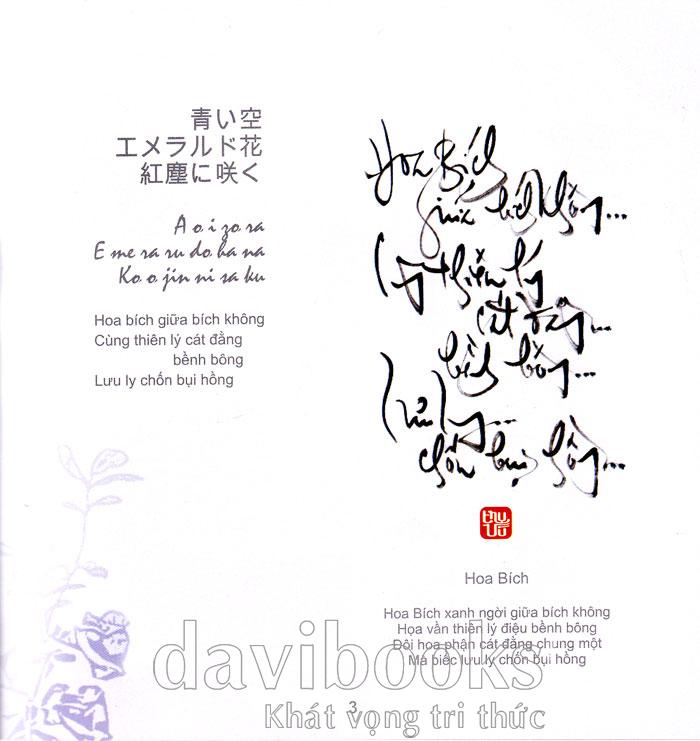 青い空
エメラルド花
紅塵に咲く
A o i zo ra
E me ra ru do ha na
Ko o jin ni sa ku
Hoa bích giữa bích không
Cùng thiên lý cát đằng
bềnh bông
Lưu ly chốn bụi hồng
Hoa Bích
giữa bích không...
Cùng thiên lý
cát đằng...
bềnh bông...
Lưu ly...
chốn bụi hồng...
thư
Vũ
Hoa Bích
Hoa Bích xanh ngời giữa bích không
Họa vần thiên lý điệu bềnh bông
Đôi hoa phận cát đằng chung một
Má biếc lưu ly chốn bụi hồng
davibooks
3
Khát vọng tri thức